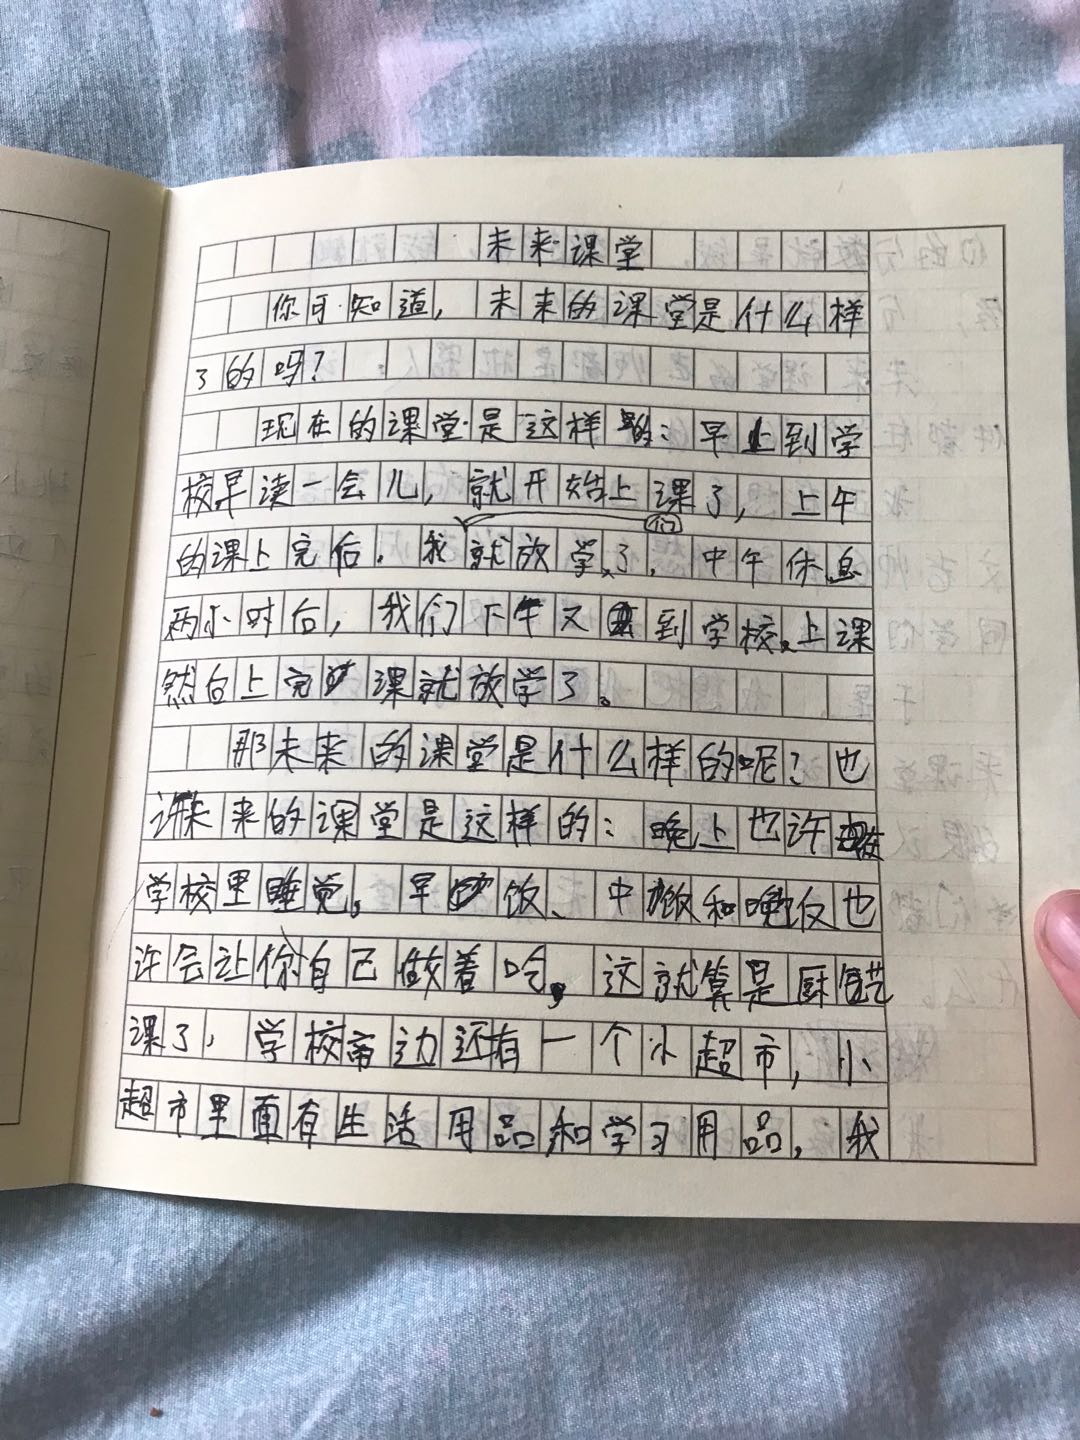 未来课堂
你可知道，未来的课堂是什么样
了的吗？
现在的课堂是这样的：早上到学
校早读一会儿，就开始上课了，上午
的课上完后，我们就放学了，中午休息
两小时后，我们下午又到学校上课
然后上完课就放学了。
那未来的课堂是什么样的呢？也
许未来的课堂是这样的：晚上也许
学校里睡觉，早饭、中饭和晚饭也
许会让你自己做着吃，这就算是厨艺
课了，学校旁边还有一个小超市，小
超市里面有生活用品和学习用品，我